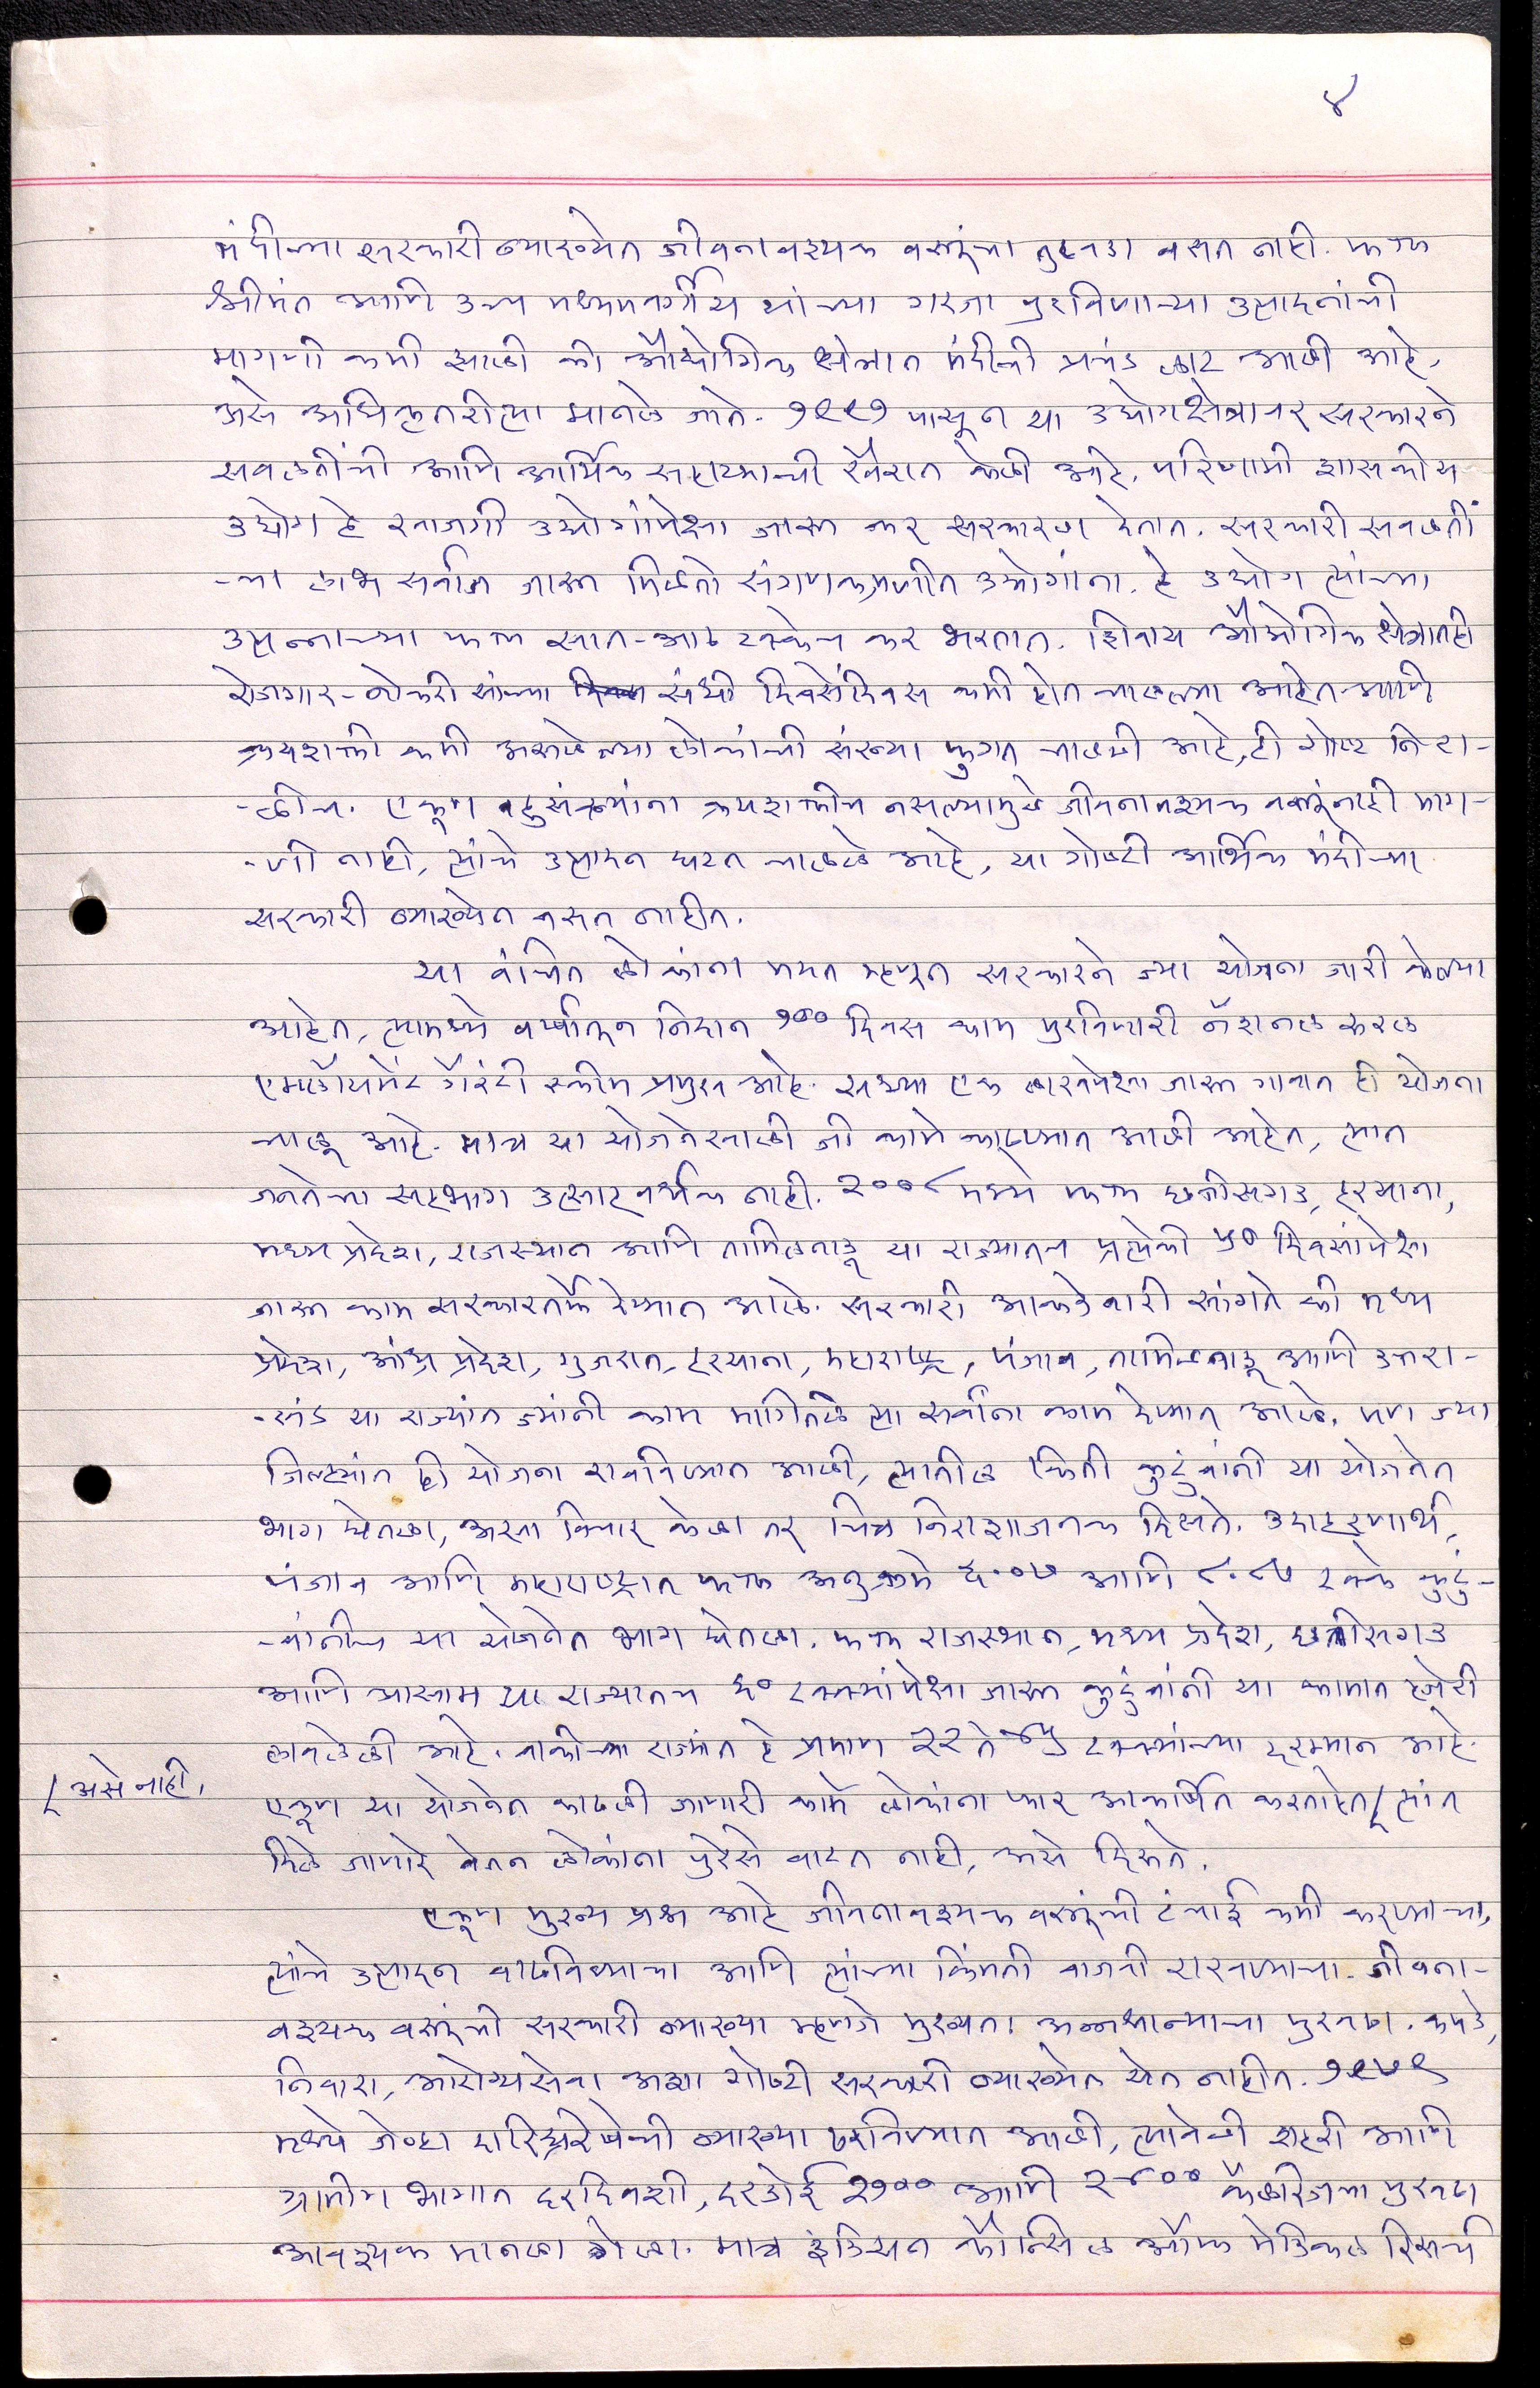 ४
मंदीच्या सरकारी व्याख्येत जीवनावश्यक वस्तूंचा तुटवडा बसत नाही. फक्त
श्रीमंत आणि उच्च मध्यमवर्गीय यांच्या गरजा पुरविणाऱ्या उत्पादनांची
मागणी कमी झाली की औद्योगिक क्षेत्रात मंदीची प्रचंड लाट आली आहे,
असे अधिकृतरीत्या मानले जाते. १९९१ पासून या उद्योगक्षेत्रावर सरकारने
सवलतींची आणि आर्थिक सहाय्याची खैरात केली आहे. परिणामी शासकीय
उद्योग हे खाजगी उद्योगांपेक्षा जास्त कर सरकारला देतात. सरकारी सवलतीं
-चा लाभ सर्वात जास्त मिळतो संगणकप्रणीत उद्योगांना. हे उद्योग त्यांच्या
उत्पन्नाच्या फक्त सात-आठ टक्केच कर भरतात. शिवाय औद्योगिक क्षेत्रातही
रोजगार-नोकरी यांच्या संधी दिवसेंदिवस कमी होत चालल्या आहेत आणि
क्रयशक्ती कमी असलेल्या लोकांची संख्या फुगत चालली आहे, ही गोष्ट निरा-
-ळीच. एकूण बहुसंख्यांना क्रयशक्तीच नसल्यामुळे जीवनावश्यक वस्तूंनाही माग-
-णी नाही, त्यांचे उत्पादन घटत चालले आहे, या गोष्टी आर्थिक मंदीच्या
सरकारी व्याख्येत बसत नाहीत.
या वंचित लोकांना मदत म्हणून सरकारने ज्या योजना जारी केल्या
आहेत, त्यामध्ये वर्षातून निदान १०० दिवस काम पुरविणारी नॅशनल रूरल
एम्प्लॉयमेंट गॅरंटी स्कीम प्रमुख आहे. सध्या एक लाखापेक्षा जास्त गावात ही योजना
चालू आहे. मात्र या योजनेखाली जी कामे काढण्यात आली आहेत, त्यात
जनतेचा सहभाग उत्साहवर्धक नाही. २००८ मध्ये फक्त छत्तीसगड, हरयाना,
मध्य प्रदेश, राजस्थान आणि तामिळनाडू या राज्यातच प्रत्येकी ५० दिवसांपेक्षा
जास्त काम सरकारतर्फे देण्यात आले. सरकारी आकडेवारी सांगते की मध्य
प्रदेश, आंध्र प्रदेश, गुजरात, हरयाना, महाराष्ट्र, पंजाब, तामिळनाडू आणि उत्तरा-
-खंड या राज्यांत ज्यांनी काम मागितले त्या सर्वांना काम देण्यात आले. पण ज्या
जिल्ह्यांत ही योजना राबविण्यात आली, त्यातील किती कुटुंबांनी या योजनेत
भाग घेतला, असा विचार केला तर चित्र निराशाजनक दिसते. उदाहरणार्थ,
पंजाब आणि महाराष्ट्रात फक्त अनुक्रमे ६.०७ आणि ८.८७ टक्के कुटुं-
-बांनीच या योजनेत भाग घेतला. फक्त राजस्थान, मध्य प्रदेश, छत्तीसगड
आणि आसाम या राज्यातच ६० टक्क्यांपेक्षा जास्त कुटुंबांनी या कामात हजेरी
लावलेली आहे. बाकीच्या राज्यांत हे प्रमाण २२ ते ४५ टक्क्यांच्या दरम्यान आहे.
एकूण या योजनेत काढली जाणारी कामे लोकांना फार आकर्षित करताहेत / त्यांत
/ असे नाही,
मिळे जाणारे वेतन लोकांना पुरेसे वाटत नाही, असे दिसते.
एकूण मुख्य प्रश्न आहे जीवनावश्यक वस्तूंची टंचाई कमी करण्याचा,
त्यांचे उत्पादन वाढविण्याचा आणि त्यांच्या किंमती वाजवी राखण्याचा. जीवना-
वश्यक वस्तूंची सरकारी व्याख्या म्हणजे मुख्यतः अन्नधान्याचा पुरवठा. कपडे,
निवारा, आरोग्यसेवा अशा गोष्टी सरकारी व्याख्येत येत नाहीत. १९७९
मध्ये जेव्हा दारिद्र्यरेषेची व्याख्या ठरविण्यात आली, त्यावेळी शहरी आणि
ग्रामीण भागात दरदिवशी, दरडोई २१०० आणि २४०० कॅलरिजचा पुरवठा
आवश्यक मानला गेला. मात्र इंडियन कौन्सिल ऑफ मेडिकल रिसर्च